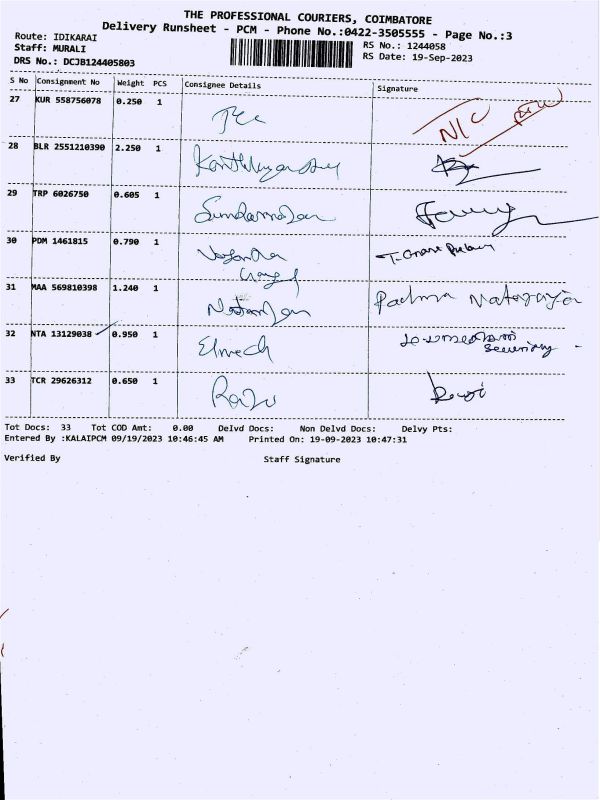 THE PROFESSIONAL COURIERS, COIMBATORE
Delivery Runsheet - PCM - Phone No.:0422-3505555 - Page No.:3
Route: IDIKARAI
Staff: MURALI
DRS No.: DCJB124405803
RS No.: 1244058
RS Date: 19-Sep-2023
S No Consignment No Weight PCS Consignee Details Signature
27 KUR 558756078 0.250 1 N/C
28 BLR 2551210390 2.250 1
29 TRP 6026750 0.605 1
30 PDM 1461815 0.790 1
31 MAA 569810398 1.240 1 Padma
32 NTA 13129038 0.950 1 Security
33 TCR 29626312 0.650 1
Tot Docs: 33 Tot COD Amt: 0.00 Delvd Docs: Non Delvd Docs: Delvy Pts:
Entered By :KALAIPCM 09/19/2023 10:46:45 AM Printed On: 19-09-2023 10:47:31
Verified By Staff Signature